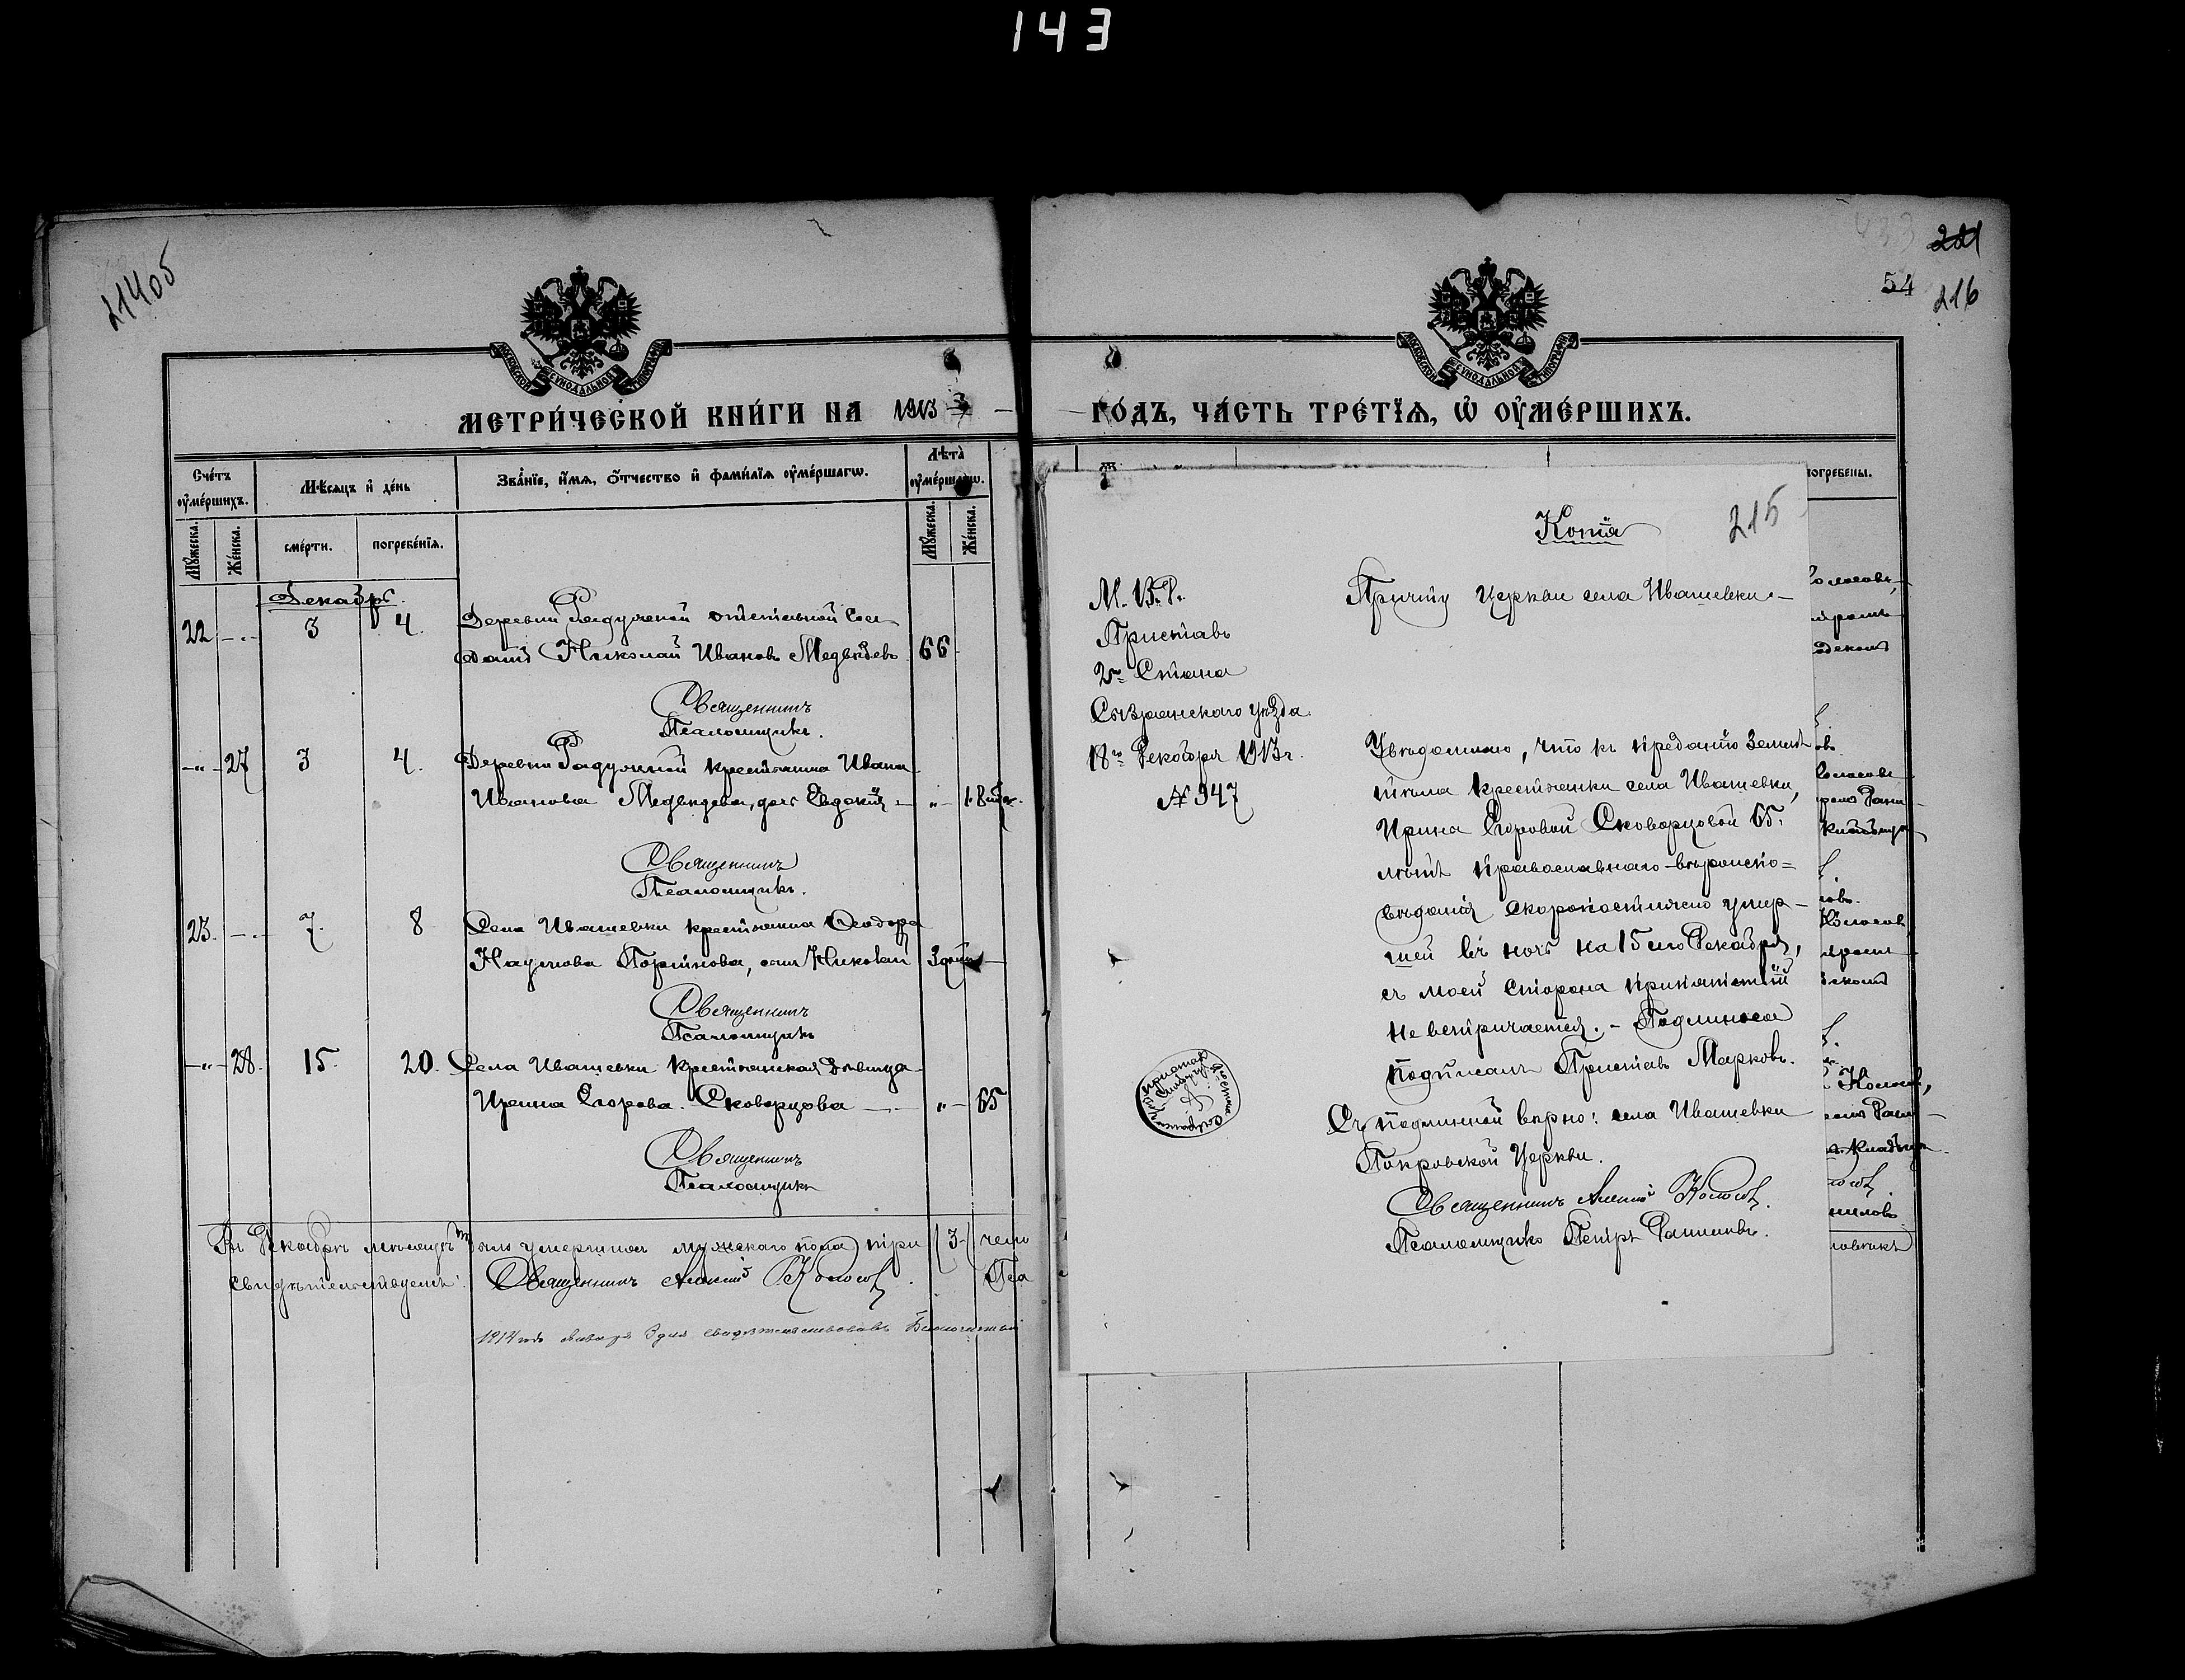 143
214об
221
54
216
МЕТРИ́ЧЕСКОЙ КНИ́ГИ НА 1913
ГО́ДЪ, ЧА́СТЬ ТРЕ́ТЇѦ, Ѡ҆ ОУ҆МЕ́РШИХЪ.
Сче́тъ оу҆ме́ршихъ.
Мѣ́сѧцъ и҆ де́нь
Зва́нїе, и҆́мѧ, ѻ҆́тчество и҆ фами́лїѧ оу҆ме́ршагѡ.
Лѣ́та оу҆ме́ршагѡ.
Мꙋ́жеска.
Же́нска.
сме́рти.
погребе́нїѧ.
Мꙋ́жеска.
Же́нска.
погребены.
Декабрь.
22 -„- 3 4. Деревни Радужной отставной сол
датъ Николай Ивановъ Медвѣдевъ 66
Священникъ
Псаломщикъ.
-„- 27 3 4. Деревни Радужной крестьянина Ивана
Иванова Медвѣдева, дочь Евдокія - „-
Священникъ
Псаломщикъ.
23. -„- 7. 8 Села Ивашевки крестьянина Ѳеодора
Наумова Портнова, сынъ Николай 3 дней
Священникъ
Псаломщикъ
-„- 28. 15. 20. Села Ивашевки крестьянская дѣвица
Ирина Егорова Скворцова -„- 65
Священникъ
Псаломщикъ
Въ Декабрѣ мѣсяцѣ было умершихъ мужского пола три (3)
свидѣтельствуемъ: Священникъ Алексій Колосов
1914 года января 3 дня свидѣтельствовалъ Благочинный
Копія
215
М. В. Д.
Приставъ
2го Стана
Сызранскаго уѣзда.
18го Декабря 1913 г.
№ 947
Причту Церкви села Ивашевки.-
Увѣдомляю, что къ преданію землѣ
тѣла крестьянки села Ивашевки,
Ирина Егоровой Скворцовой 65.
лѣтъ православнаго вѣроиспо=
вѣданія скоропостижно умер-
шей въ ночь на 15 сего Декабря,
съ моей сторона препятствій
не встричается. - Подлинное
подписалъ Приставъ Марковъ.
Съ подлинной вѣрно: села Ивашевки
Покровской Церкви.
Священникъ Алексій Колосов.
Псаломщикъ Петръ